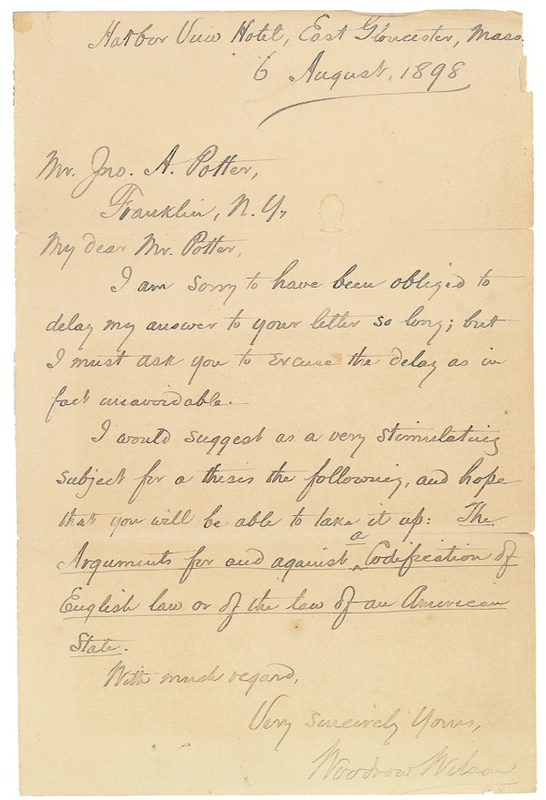 Harbor View Hotel, East Gloucester, Mass.
6 August, 1898
Mr. Jno. A. Potter,
Franklin, N.Y.,
My dear Mr. Potter,
I am sorry to have been obliged to
delay my answer to your letter so long; but
I must ask you to excuse the delay as in
fact unavoidable.
I would suggest as a very stimulating
subject for a thesis the following, and hope
that you will be able to take it up: The
Arguments for and against a Codification of
English law or of the law of an American
State.
With much regard,
Very sincerely Yours,
Woodrow Wilson